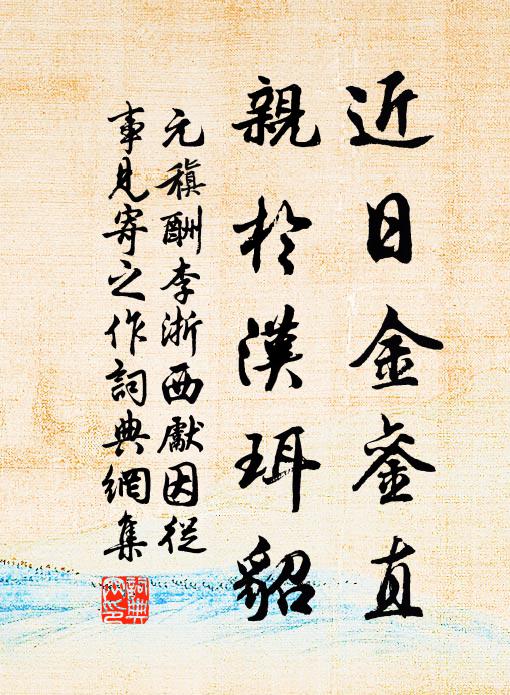 近日金銮直
親於漢珥貂
元稹酬李浙西獻因從
事見寄之作詞典網集